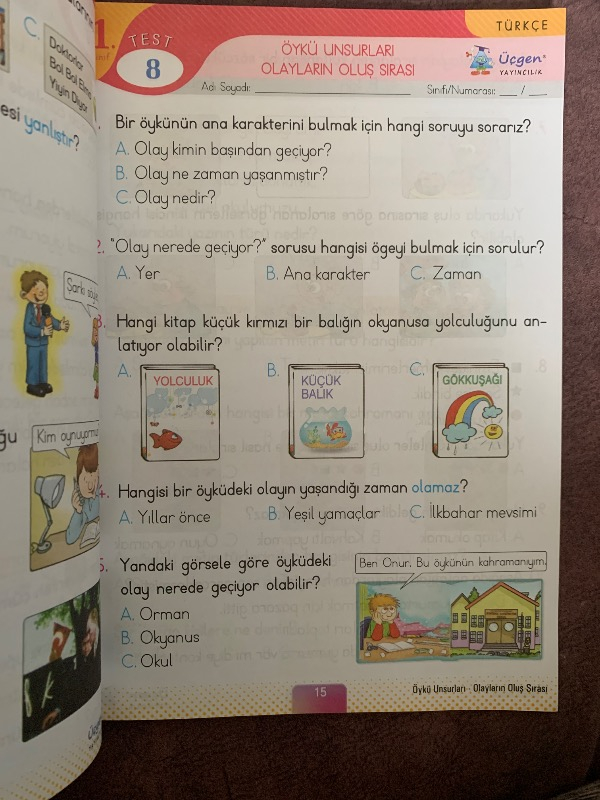 C.
Doktorlar
Bol Bol Elma
Yiyin Diyor
yanlıştır?
Şarkı
Kim oynuyormuş
1.
TEST
8
ÖYKÜ UNSURLARI
OLAYLARIN OLUŞ SIRASI
TÜRKÇE
Üçgen
YAYINCILIK
Adı Soyadı:
Sınıfı/Numarası: ___ / ___
Bir öykünün ana karakterini bulmak için hangi soruyu sorarız?
A. Olay kimin başından geçiyor?
B. Olay ne zaman yaşanmıştır?
C. Olay nedir?
2. "Olay nerede geçiyor?" sorusu hangisi ögeyi bulmak için sorulur?
A. Yer B. Ana karakter C. Zaman
3. Hangi kitap küçük kırmızı bir balığın okyanusa yolculuğunu an-
latıyor olabilir?
A. B. C.
YOLCULUK
KÜÇÜK
BALIK
GÖKKUŞAĞI
4. Hangisi bir öyküdeki olayın yaşandığı zaman olamaz?
A. Yıllar önce B. Yeşil yamaçlar C. İlkbahar mevsimi
5. Yandaki görsele göre öyküdeki
olay nerede geçiyor olabilir?
A. Orman
B. Okyanus
C. Okul
Ben Onur. Bu öykünün kahramanıyım.
15
Öykü Unsurları - Olayların Oluş Sırası